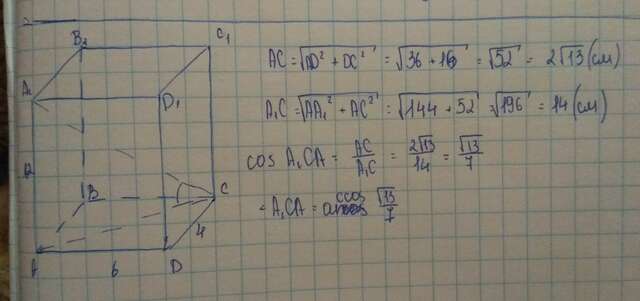 B₁
C₁
A₁
D₁
12
B
C
4
A
6
D
AC = √AD² + DC² = √36 + 16 = √52 = 2√13 (см)
A₁C = √AA₁² + AC² = √144 + 52 = √196 = 14 (см)
cos A₁CA = AC/A₁C = 2√13/14 = √13/7
∠A₁CA = arccos √13/7